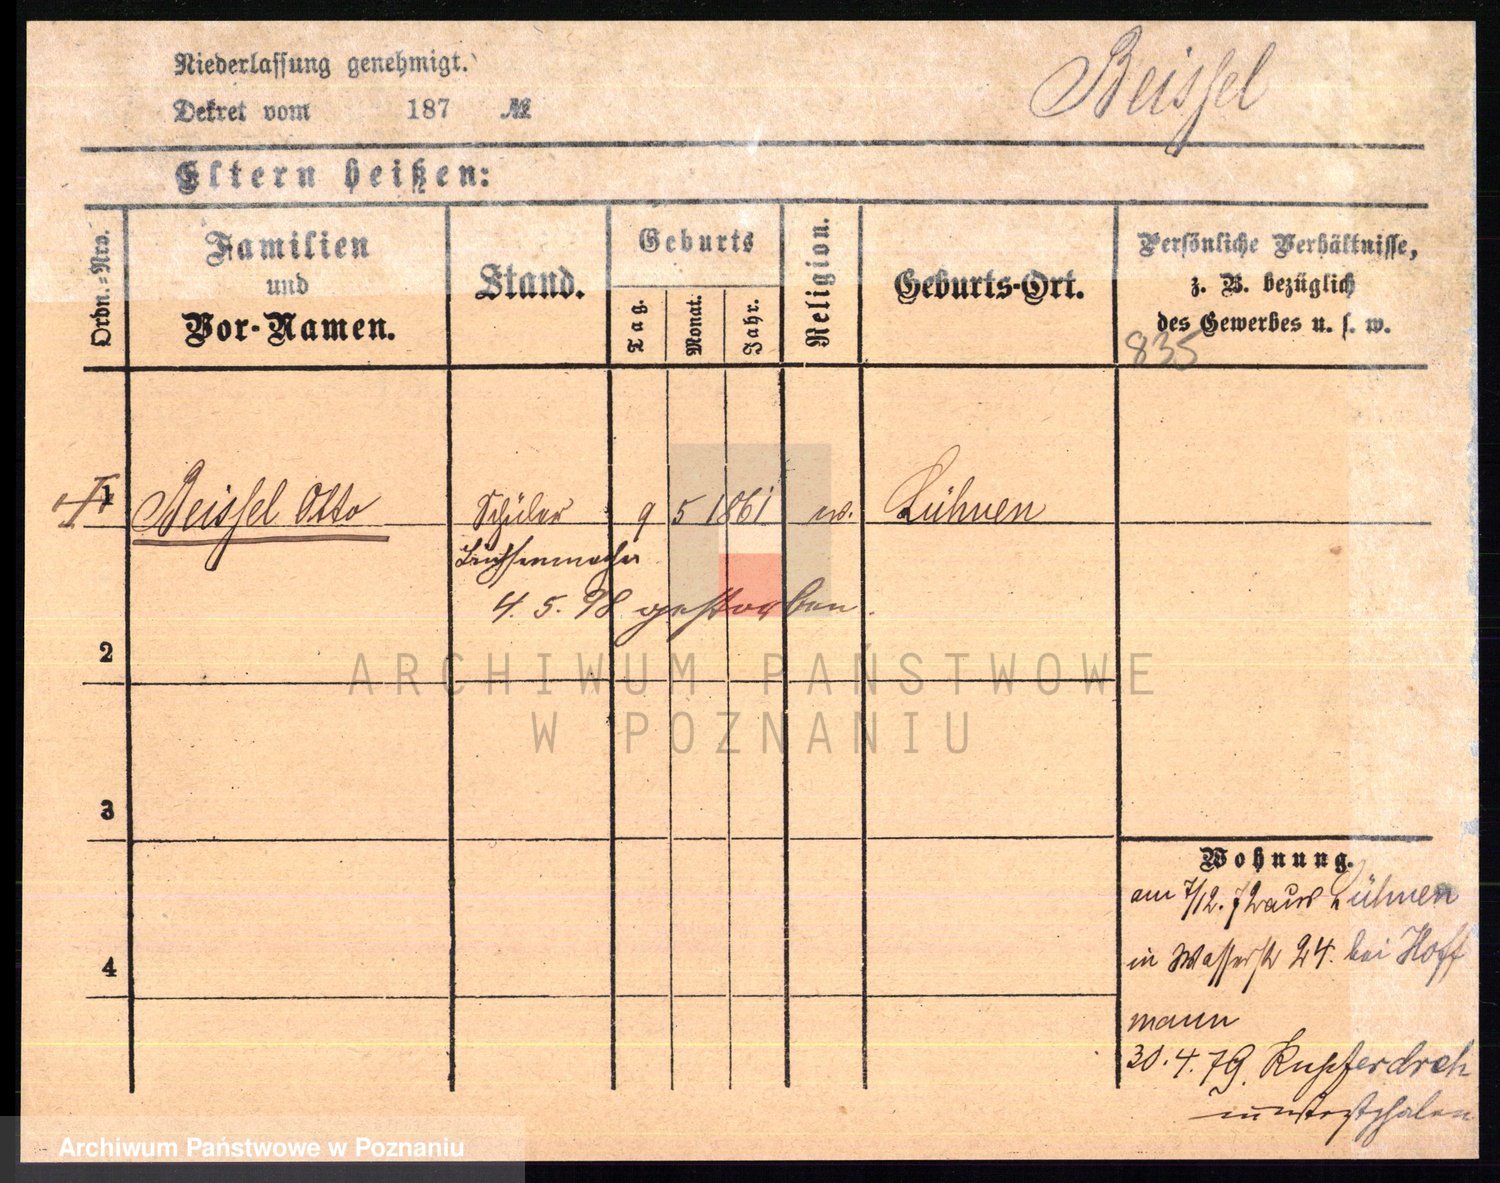 Niederlassung genehmigt.
Dekret vom 187 №
Beissel
Eltern heißen:
Ordn.-Nro.
Familien
und
Vor-Namen.
Stand.
Geburts
Tag.
Monat.
Jahr.
Religion.
Geburts-Ort.
Persönliche Verhältnisse,
z. B. bezüglich
des Gewerbes u. s. w.
835
1 Beissel Otto Schüler 9 5 1861 ev. Lühnen
Büchsenmacher
4. 5. 98 gestorben.
2
ARCHIWUM PAŃSTWOWE
W POZNANIU
3
Wohnung.
am 7/12. 72 aus Lühnen
in Wasserstr 24. bei Hoff
4
mann
30.4.79. Kupferdreh
in Westphalen
Archiwum Państwowe w Poznaniu